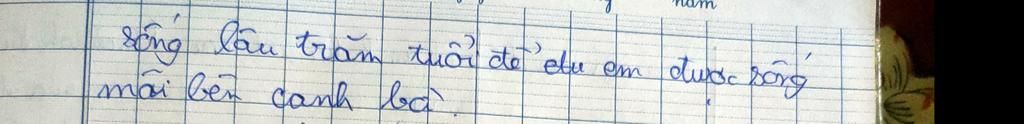 năm
sống lâu trăm tuổi để chu em được sống
mãi bên cạnh bà.